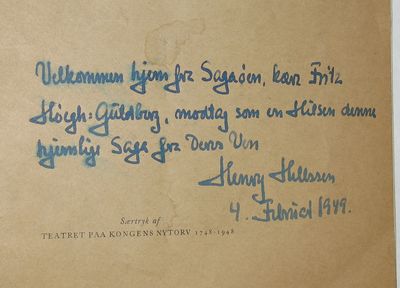 Velkommen hjem fra Sagaøen, kære Fritz
Høegh-Guldberg, modtag som en Hilsen denne
hjemlige Saga fra Deres Ven
Henry Hellssen
4. Februar 1949.
Særtryk af
TEATRET PAA KONGENS NYTORV 1748-1948